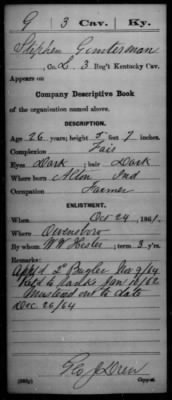 G 3 Cav. Ky.
Stephen Ginterman
, Co. L, 3 Reg't Kentucky Cav.
Appears on
Company Descriptive Book
of the organization named above.
DESCRIPTION.
Age 26 years; height 5 feet 7 inches.
Complexion Fair
Eyes Dark; hair Dark
Where born Alton Ind
Occupation Farmer
ENLISTMENT.
When Oct 24, 1861.
Where Owensboro
By whom W W Hester; term 3 y'rs.
Remarks:
App'd Bugler Nov 9/64
Paid to Jan 10/62
Mustered out to date
Dec 26/64
Geo J Drew
Copyist.